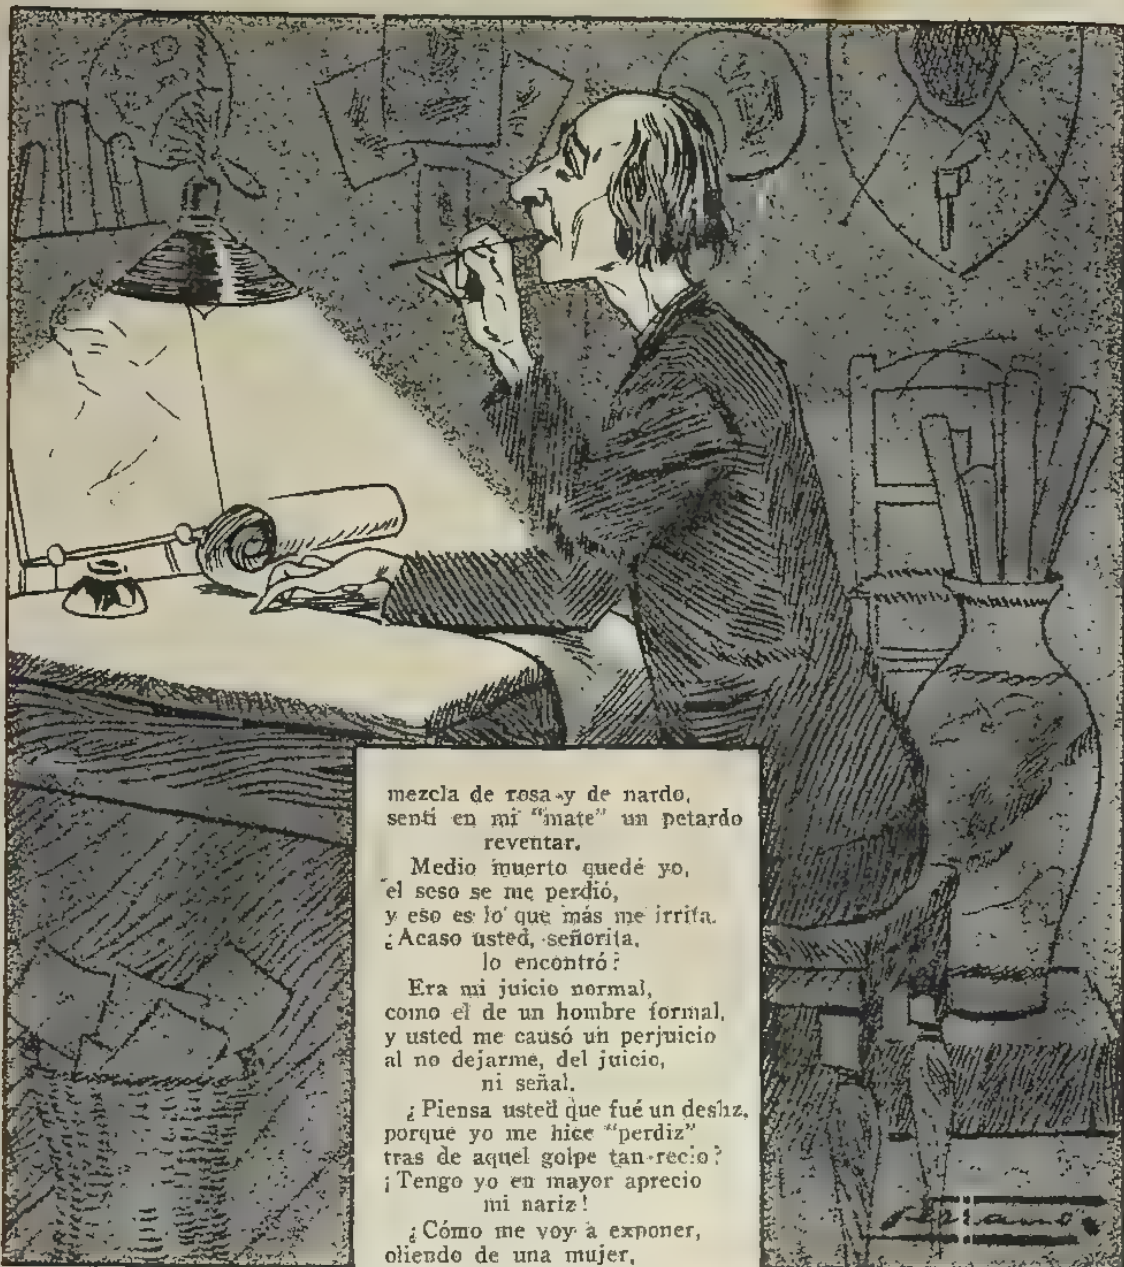 mezcla de rosa y de nardo,
sentí en mi "mate" un petardo
reventar.
Medio muerto quedé yo,
el seso se me perdió,
y eso es lo que más me irrita.
¿Acaso usted, señorita,
lo encontró?
Era mi juicio normal,
como el de un hombre formal,
y usted me causó un perjuicio
al no dejarme, del juicio,
ni señal.
¿Piensa usted que fué un desliz,
porque yo me hice "perdiz"
tras de aquel golpe tan recio?
¡Tengo yo en mayor aprecio
mi nariz!
¿Cómo me voy a exponer,
oliendo de una mujer,